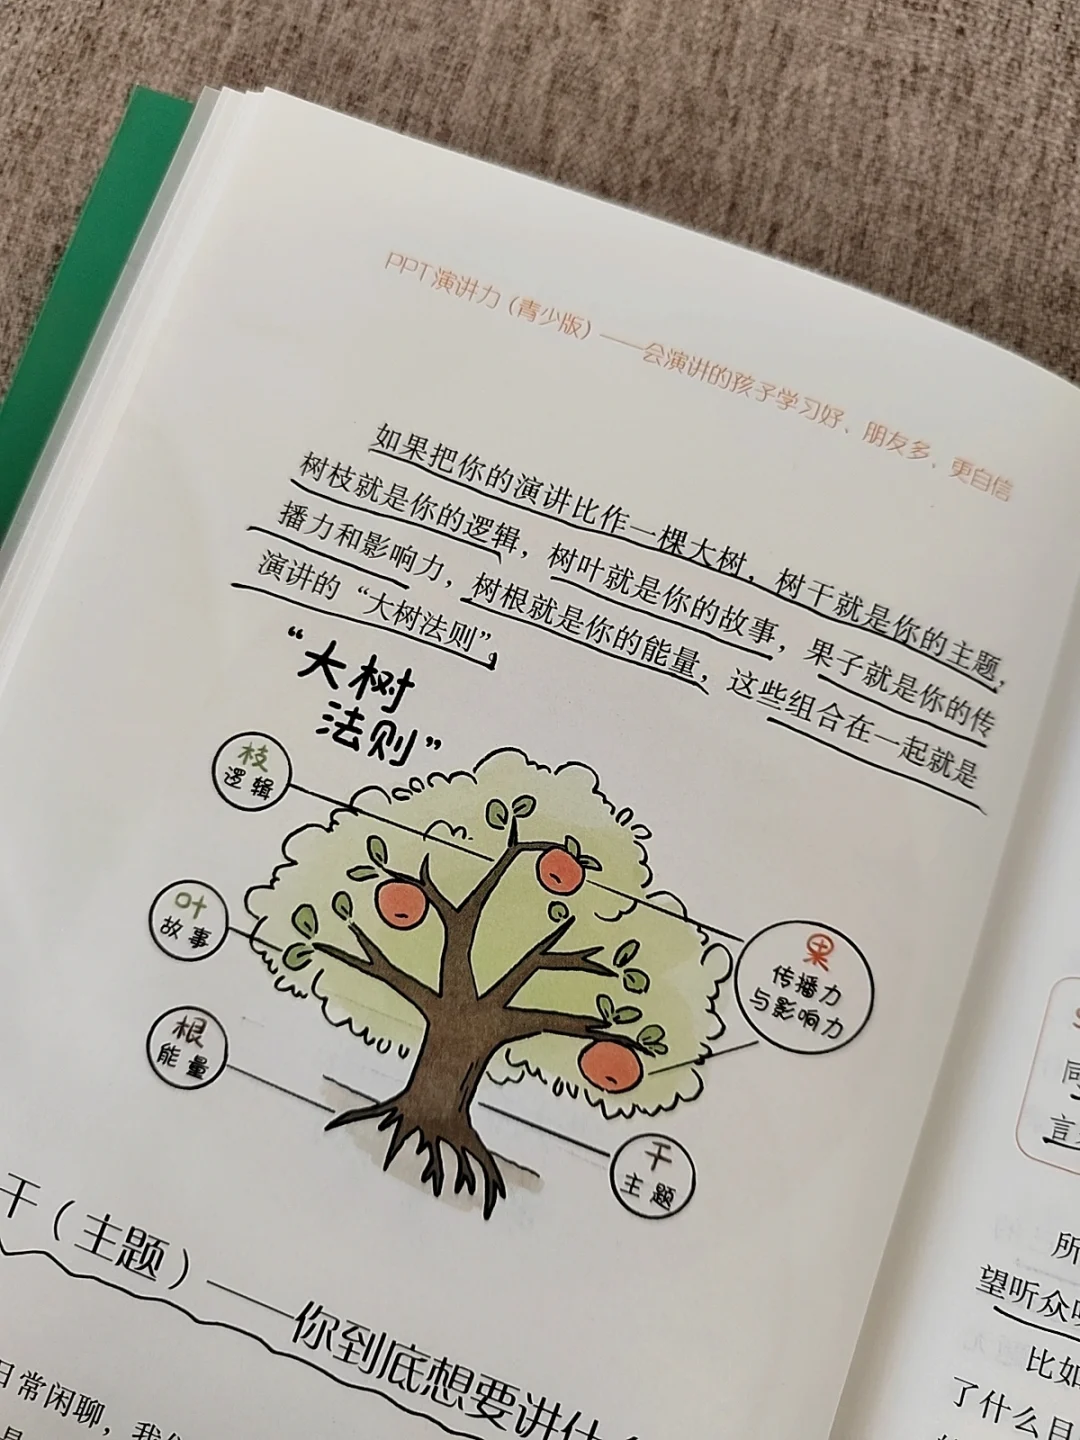 PPT演讲力（青少版）——会演讲的孩子学习好、朋友多、更自信
如果把你的演讲比作一棵大树，树干就是你的主题，
树枝就是你的逻辑，树叶就是你的故事，果子就是你的传
播力和影响力，树根就是你的能量，这些组合在一起就是
演讲的“大树法则”，
“大树
法则”
枝
逻辑
叶
故事
根
能量
果
传播力
与影响力
干
主题
干（主题）——你到底想要讲什
日常闲聊，我
是
同
言
所
望听众
比如
了什么目